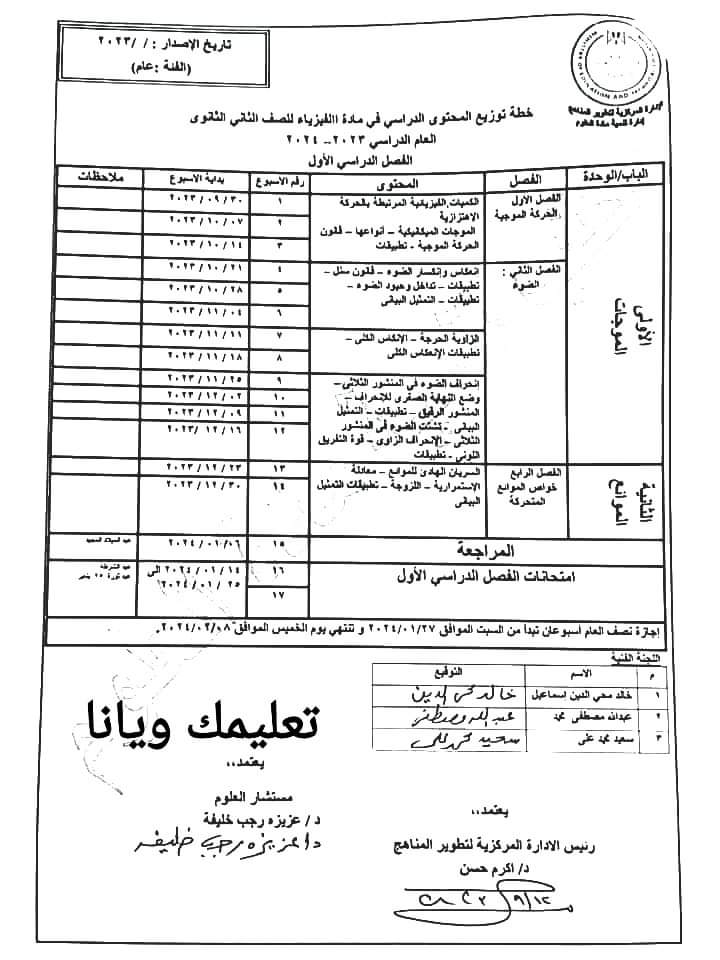 تاريخ الإصدار : / /٢٠٢٣
(الفئة :عام)
MINISTRY OF EDUCATION AND TECHNICAL
الإدارة المركزية لتطوير المناهج
إدارة تنمية مادة العلوم
خطة توزيع المحتوى الدراسي في مادة الفيزياء للصف الثاني الثانوى
العام الدراسي ٢٠٢٣-- ٢٠٢٤
الفصل الدراسي الأول
الباب/الوحدة الفصل المحتوى رقم الأسبوع بداية الاسبوع ملاحظات
الأولى
الموجات
الفصل الأول
الحركة الموجية
الكميات الفيزيقية المرتبطة بالحركة
الاهتزازية
الموجات الميكانيكية – أنواعها – قانون
الحركة الموجية - تطبيقات
١ ٣٠ /٠٩ / ٢٠٢٣
٢ ٠٧ / ١٠ / ٢٠٢٣
٣ ١٤ / ١٠ / ٢٠٢٣
الفصل الثاني :
الضوء
انعكاس وإنكسار الضوء – قانون سنل –
تطبيقات – تداخل وحيود الضوء –
تطبيقات – التمثيل البيانى
٤ ٢١ / ١٠ / ٢٠٢٣
٥ ٢٨ / ١٠ / ٢٠٢٣
٦ ٠٤ / ١١ / ٢٠٢٣
الزاوية الحرجة – الإنكاس الكلى –
تطبيقات الإنعكاس الكلى
٧ ١١ / ١١ / ٢٠٢٣
٨ ١٨ / ١١ / ٢٠٢٣
إنحراف الضوء فى المنشور الثلاثى –
وضع النهاية الصغرى للإنحراف –
المنشور الرقيق – تطبيقات – التمثيل
البيانى – تشتت الضوء فى المنشور
الثلاثى – الإنحراف الزاوى – قوة التفريق
اللونى – تطبيقات
٩ ٢٥ / ١١ / ٢٠٢٣
١٠ ٠٢ / ١٢ / ٢٠٢٣
١١ ٠٩ / ١٢ / ٢٠٢٣
١٢ ١٦ / ١٢ /٢٠٢٣
الثانية
الموائع
الفصل الرابع
خواص الموائع
المتحركة
السريان الهادئ للموائع – معادلة
الإستمرارية – اللزوجة – تطبيقات التمثيل
البيانى
١٣ ٢٣ / ١٢ / ٢٠٢٣
١٤ ٣٠ / ١٢ / ٢٠٢٣
المراجعة ١٥ ٠٦ /٠١ / ٢٠٢٤ عيد الميلاد المجيد
امتحانات الفصل الدراسي الأول
١٦ ١٤ / ٠١ / ٢٠٢٤ الى
١٧ ٢٥ / ٠١ / ٢٠٢٤
عيد الشرطة
عيد ثورة ٢٥ يناير
إجازة نصف العام أسبوعان تبدأ من السبت الموافق ٢٠٢٤/٠١/٢٧ و تنتهي يوم الخميس الموافق ٢٠٢٤/٠٢/٠٨.
اللجنة الفنية
م الاسم التوقيع
١ خالد محي الدين اسماعيل خالد محي الدين
٢ عبدالله مصطفى محمد عبد الله مصطفى
٣ سعيد محمد على سعيد محمد على
تعليمك ويانا
يعتمد،،
مستشار العلوم
د/ عزيزه رجب خليفة
د/ عزيزه رجب خليفه
يعتمد،،
رئيس الادارة المركزية لتطوير المناهج
د/ اكرم حسن